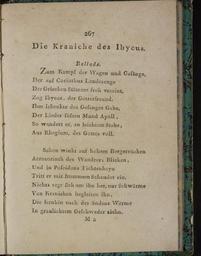 267
Die Kraniche des Ibycus.
Ballade.
Zum Kampf der Wagen und Gesänge,
Der auf Corinthus Landesenge
Der Griechen Stämme froh vereint,
Zog Ibycus, der Götterfreund.
Ihm schenkte des Gesanges Gabe,
Der Lieder süßen Mund Apoll,
So wandert er, an leichtem Stabe,
Aus Rhegium, des Gottes voll.
Schon winkt auf hohem Bergesrücken
Acrocorinth des Wandrers Blicken,
Und in Poseidons Fichtenhayn
Tritt er mit frommem Schauder ein.
Nichts regt sich um ihn her, nur Schwärme
Von Kranichen begleiten ihn,
Die fernhin nach des Südens Wärme
In graulichtem Geschwader ziehn.
M 2